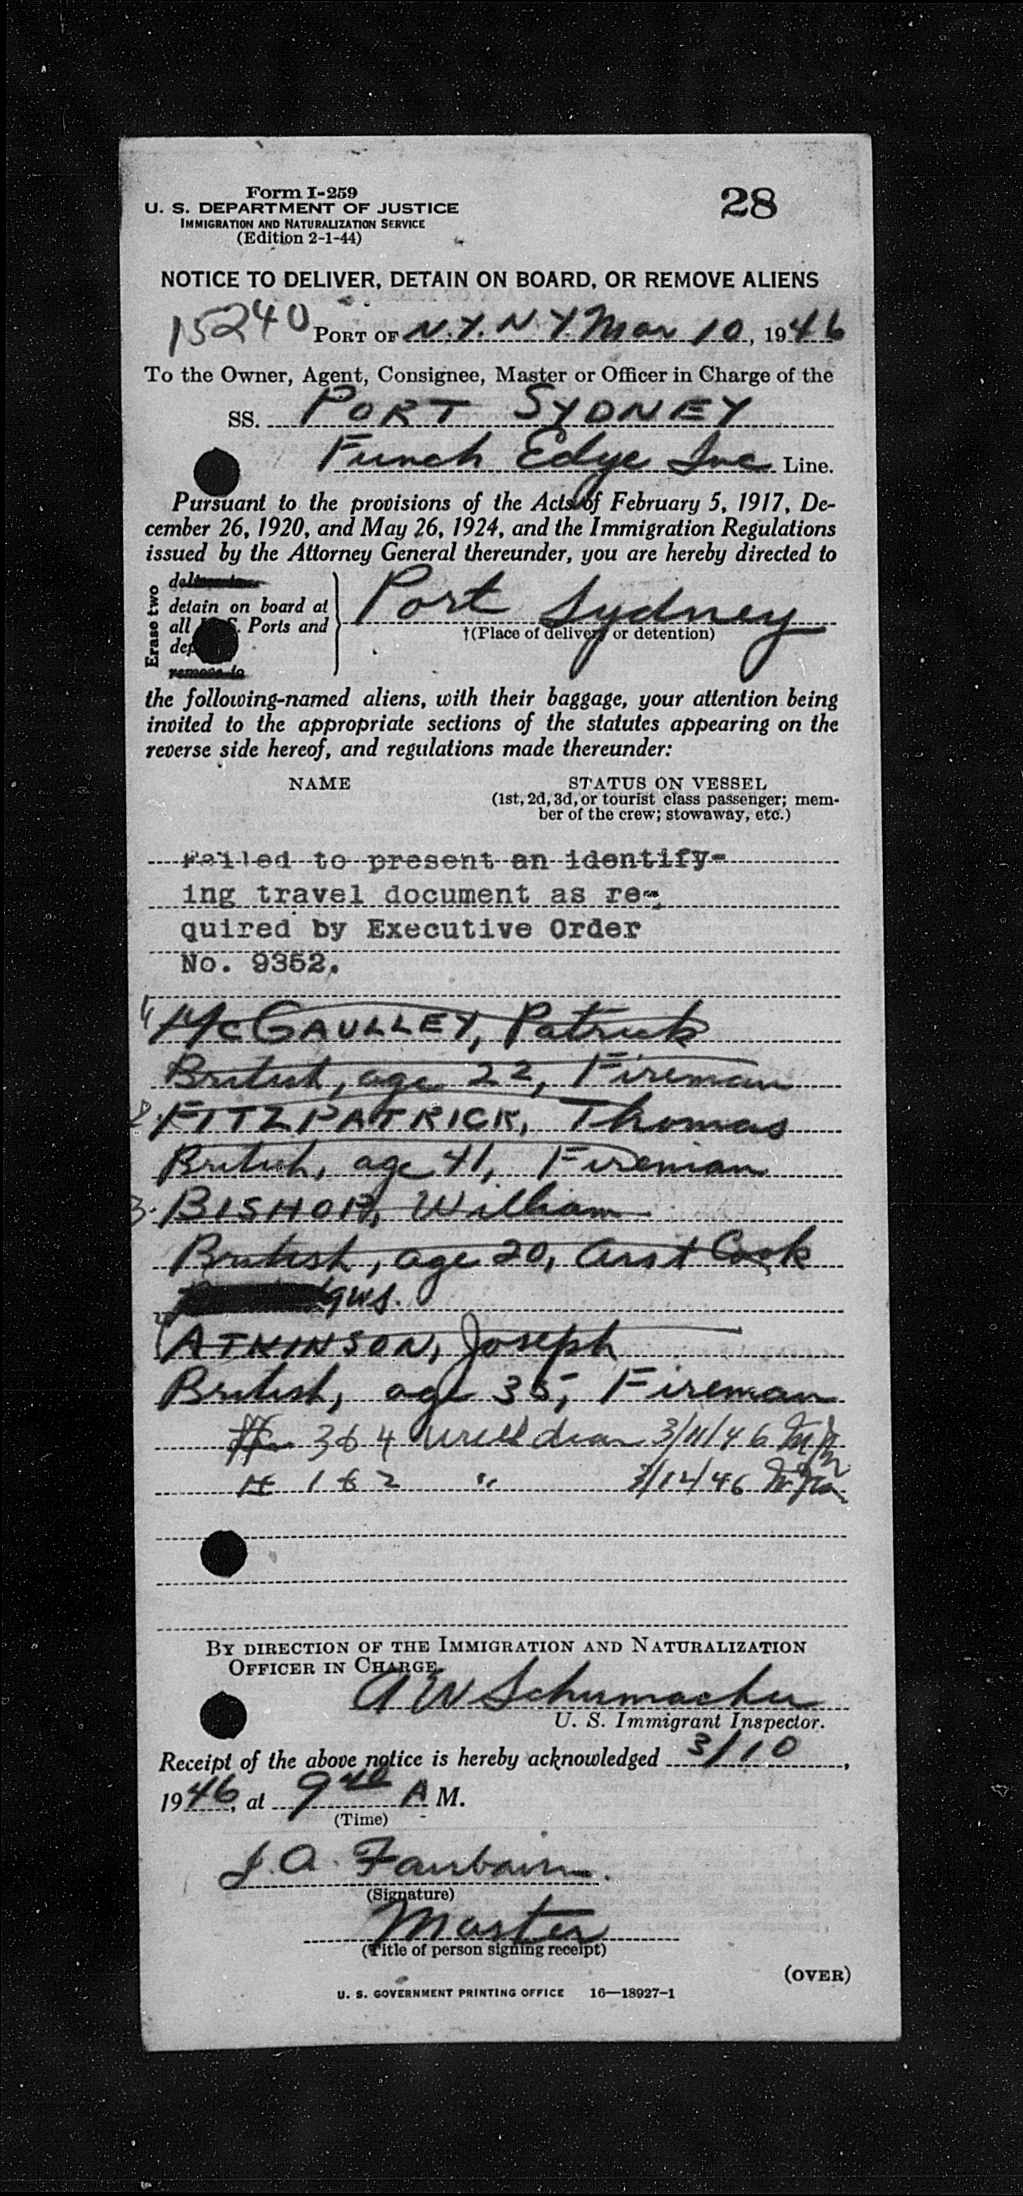 Form I-259
U. S. DEPARTMENT OF JUSTICE
IMMIGRATION AND NATURALIZATION SERVICE
(Edition 2-1-44)
28
NOTICE TO DELIVER, DETAIN ON BOARD, OR REMOVE ALIENS
15240 PORT OF N.Y. N Y. Mar 10, 1946
To the Owner, Agent, Consignee, Master or Officer in Charge of the
SS. PORT SYDNEY
Funch Edye Inc Line.
Pursuant to the provisions of the Acts of February 5, 1917, De-
cember 26, 1920, and May 26, 1924, and the Immigration Regulations
issued by the Attorney General thereunder, you are hereby directed to
Erase two
detain on board at
all Ports and
remove to
Port Sydney
†(Place of delivery or detention)
the following-named aliens, with their baggage, your attention being
invited to the appropriate sections of the statutes appearing on the
reverse side hereof, and regulations made thereunder:
NAME STATUS ON VESSEL
(1st, 2d, 3d, or tourist class passenger; mem-
ber of the crew; stowaway, etc.)
Failed to present an identify-
ing travel document as re-
quired by Executive Order
No. 9352.
McGAULLEY, Patrick
British, age 22, Fireman
2. FITZPATRICK, Thomas
British, age 41, Fireman
3. BISHOP, William
British, age 20, Asst Cook
aws.
ATKINSON, Joseph
British, age 35, Fireman
3 & 4 3/11/46
# 1 & 2 " 3/12/46
BY DIRECTION OF THE IMMIGRATION AND NATURALIZATION
OFFICER IN CHARGE
A W Schumacher
U. S. Immigrant Inspector.
Receipt of the above notice is hereby acknowledged 3/10,
1946, at 9 40 A M.
(Time)
J. A. Fairbairn.
(Signature)
Master
(Title of person signing receipt)
(OVER)
U. S. GOVERNMENT PRINTING OFFICE 16—18927-1